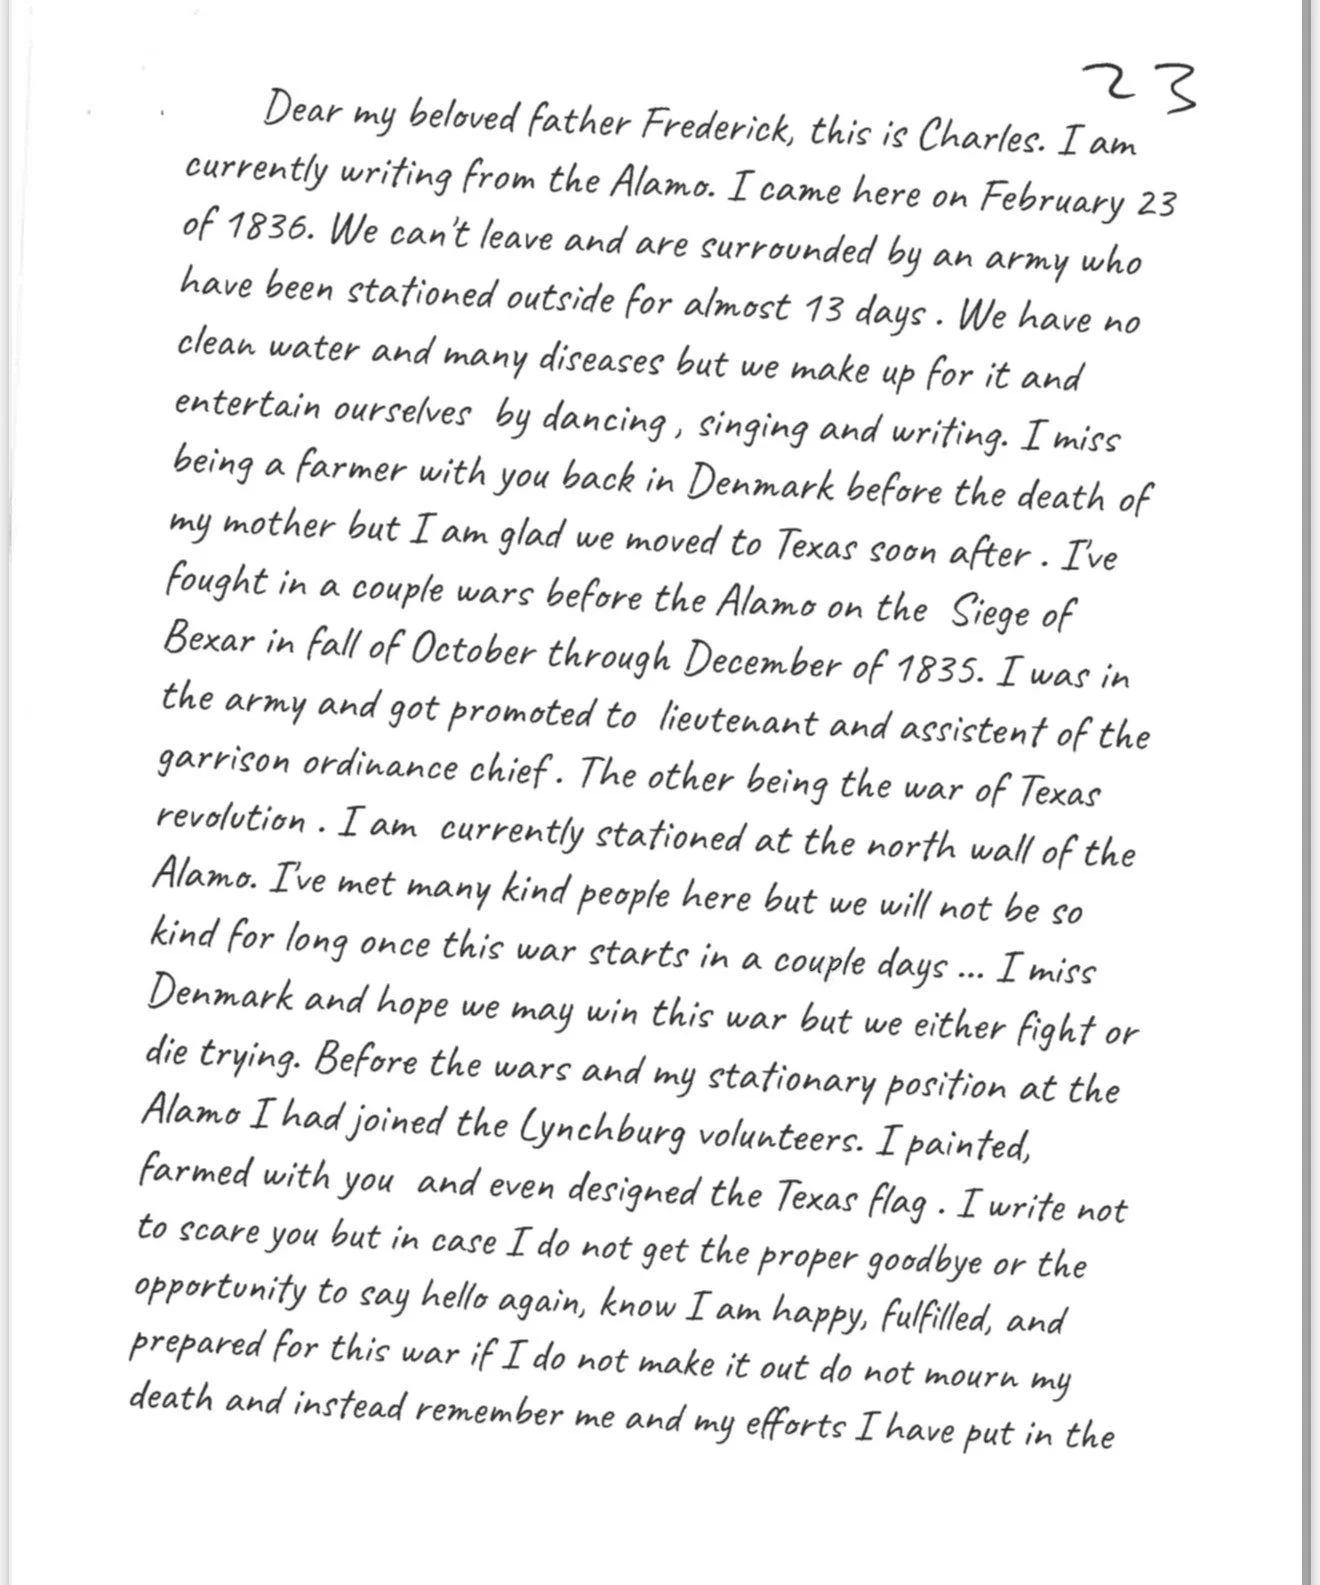 23
Dear my beloved father Frederick, this is Charles. I am
currently writing from the Alamo. I came here on February 23
of 1836. We can't leave and are surrounded by an army who
have been stationed outside for almost 13 days . We have no
clean water and many diseases but we make up for it and
entertain ourselves by dancing , singing and writing. I miss
being a farmer with you back in Denmark before the death of
my mother but I am glad we moved to Texas soon after . I've
fought in a couple wars before the Alamo on the Siege of
Bexar in fall of October through December of 1835. I was in
the army and got promoted to lieutenant and assistent of the
garrison ordinance chief . The other being the war of Texas
revolution . I am currently stationed at the north wall of the
Alamo. I've met many kind people here but we will not be so
kind for long once this war starts in a couple days ... I miss
Denmark and hope we may win this war but we either fight or
die trying. Before the wars and my stationary position at the
Alamo I had joined the Lynchburg volunteers. I painted,
farmed with you and even designed the Texas flag . I write not
to scare you but in case I do not get the proper goodbye or the
opportunity to say hello again, know I am happy, fulfilled, and
prepared for this war if I do not make it out do not mourn my
death and instead remember me and my efforts I have put in the